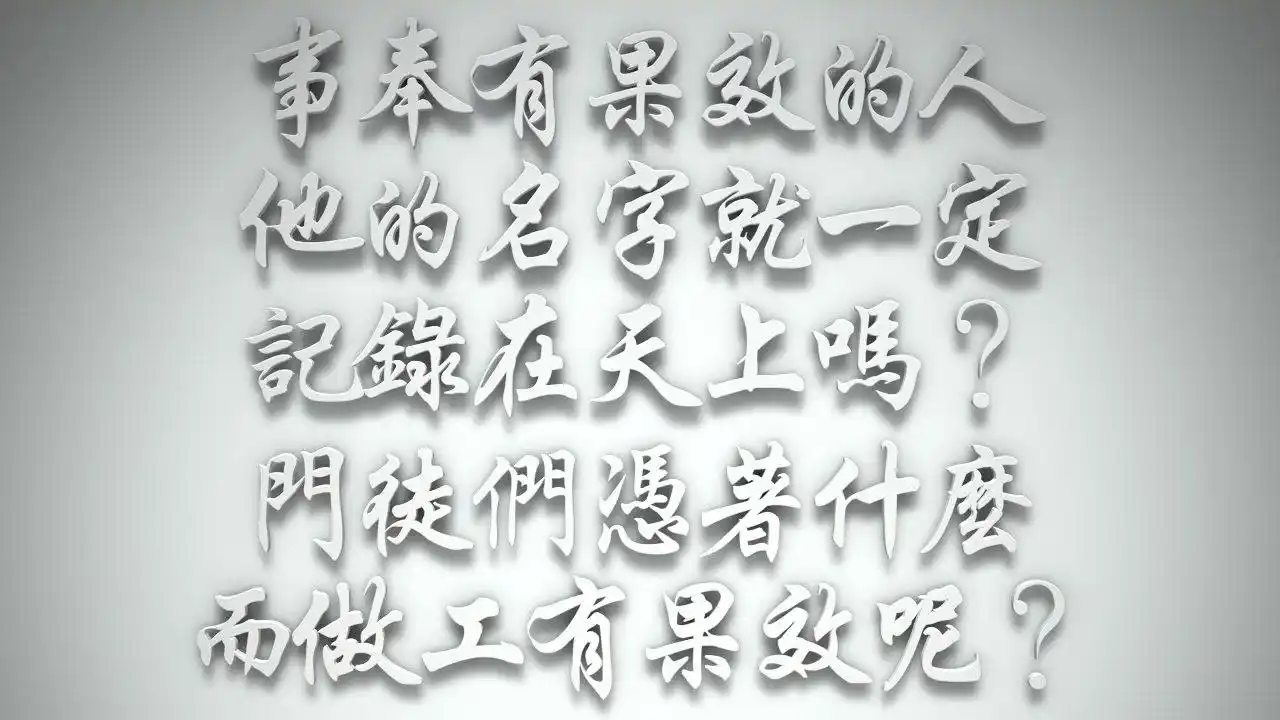 事奉有果效的人
他的名字就一定
記錄在天上嗎？
門徒們憑著什麼
而做工有果效呢？